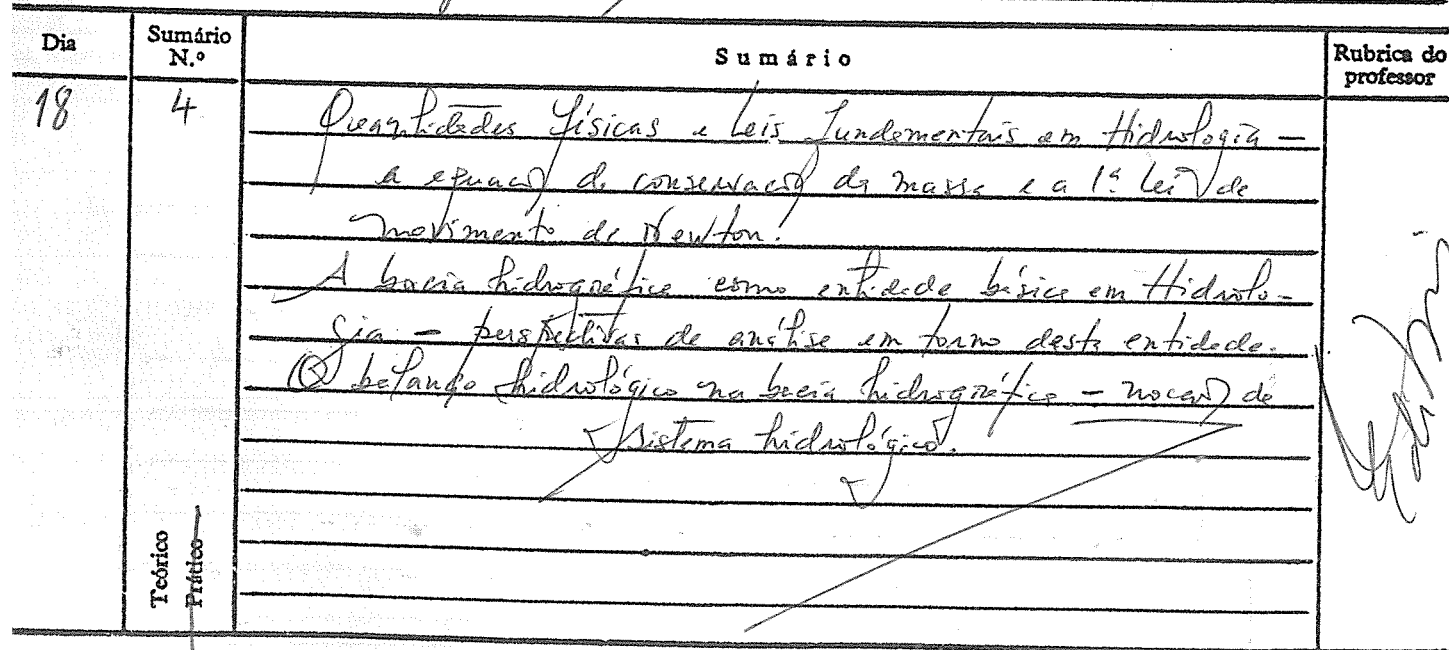 Dia
Sumário N.º
Sumário
Rubrica do professor
18
4
Quantidades físicas e leis fundamentais em Hidrologia —
a equação de conservação da massa e a 1ª lei de
movimento de Newton.
A bacia hidrográfica como entidade básica em Hidrolo-
gia — perspectivas de análise em torno desta entidade.
O balanço hidrológico na bacia hidrográfica — noção de
sistema hidrológico.
Teórico
Prático